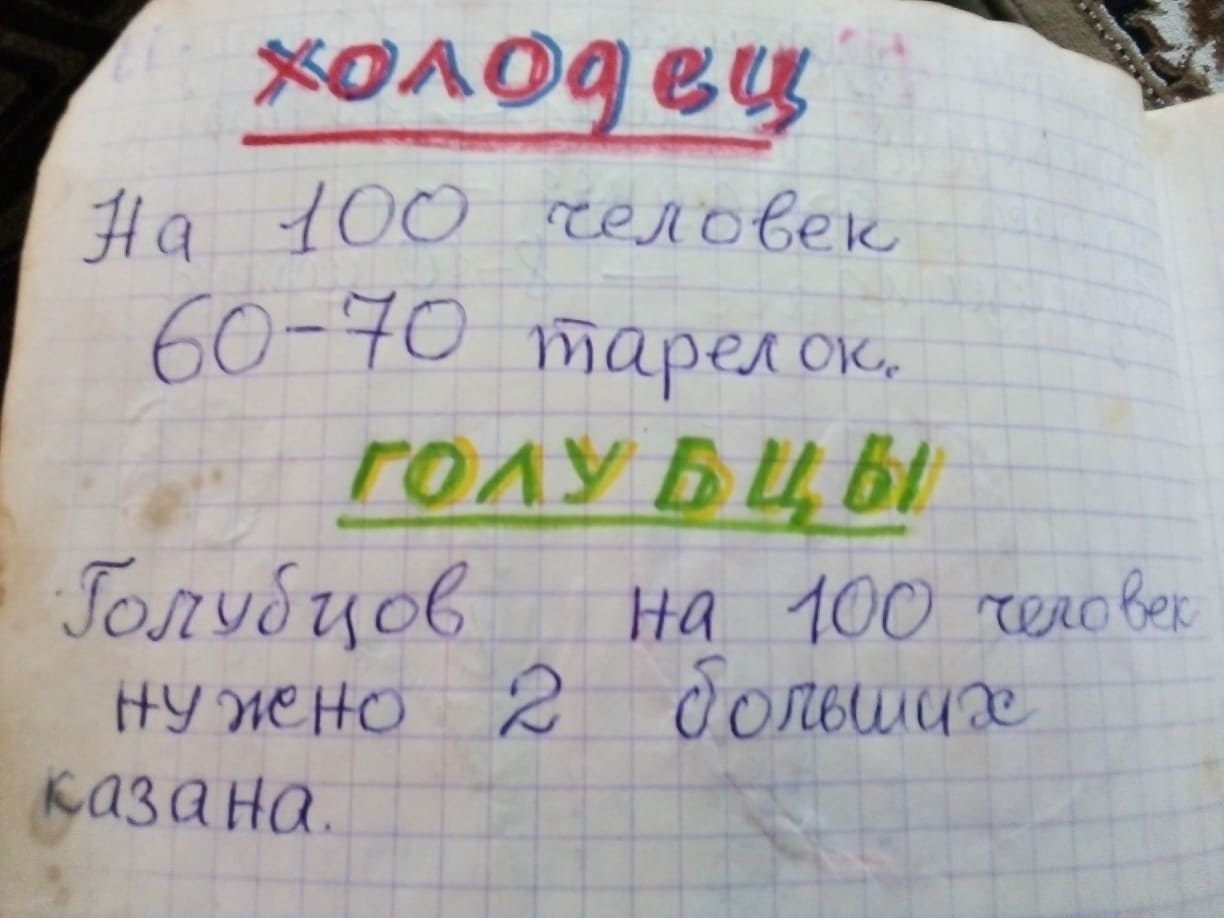 ХОЛОДЕЦ
На 100 человек
60-70 тарелок.
ГОЛУБЦЫ
Голубцов на 100 человек
нужено 2 больших
казана.